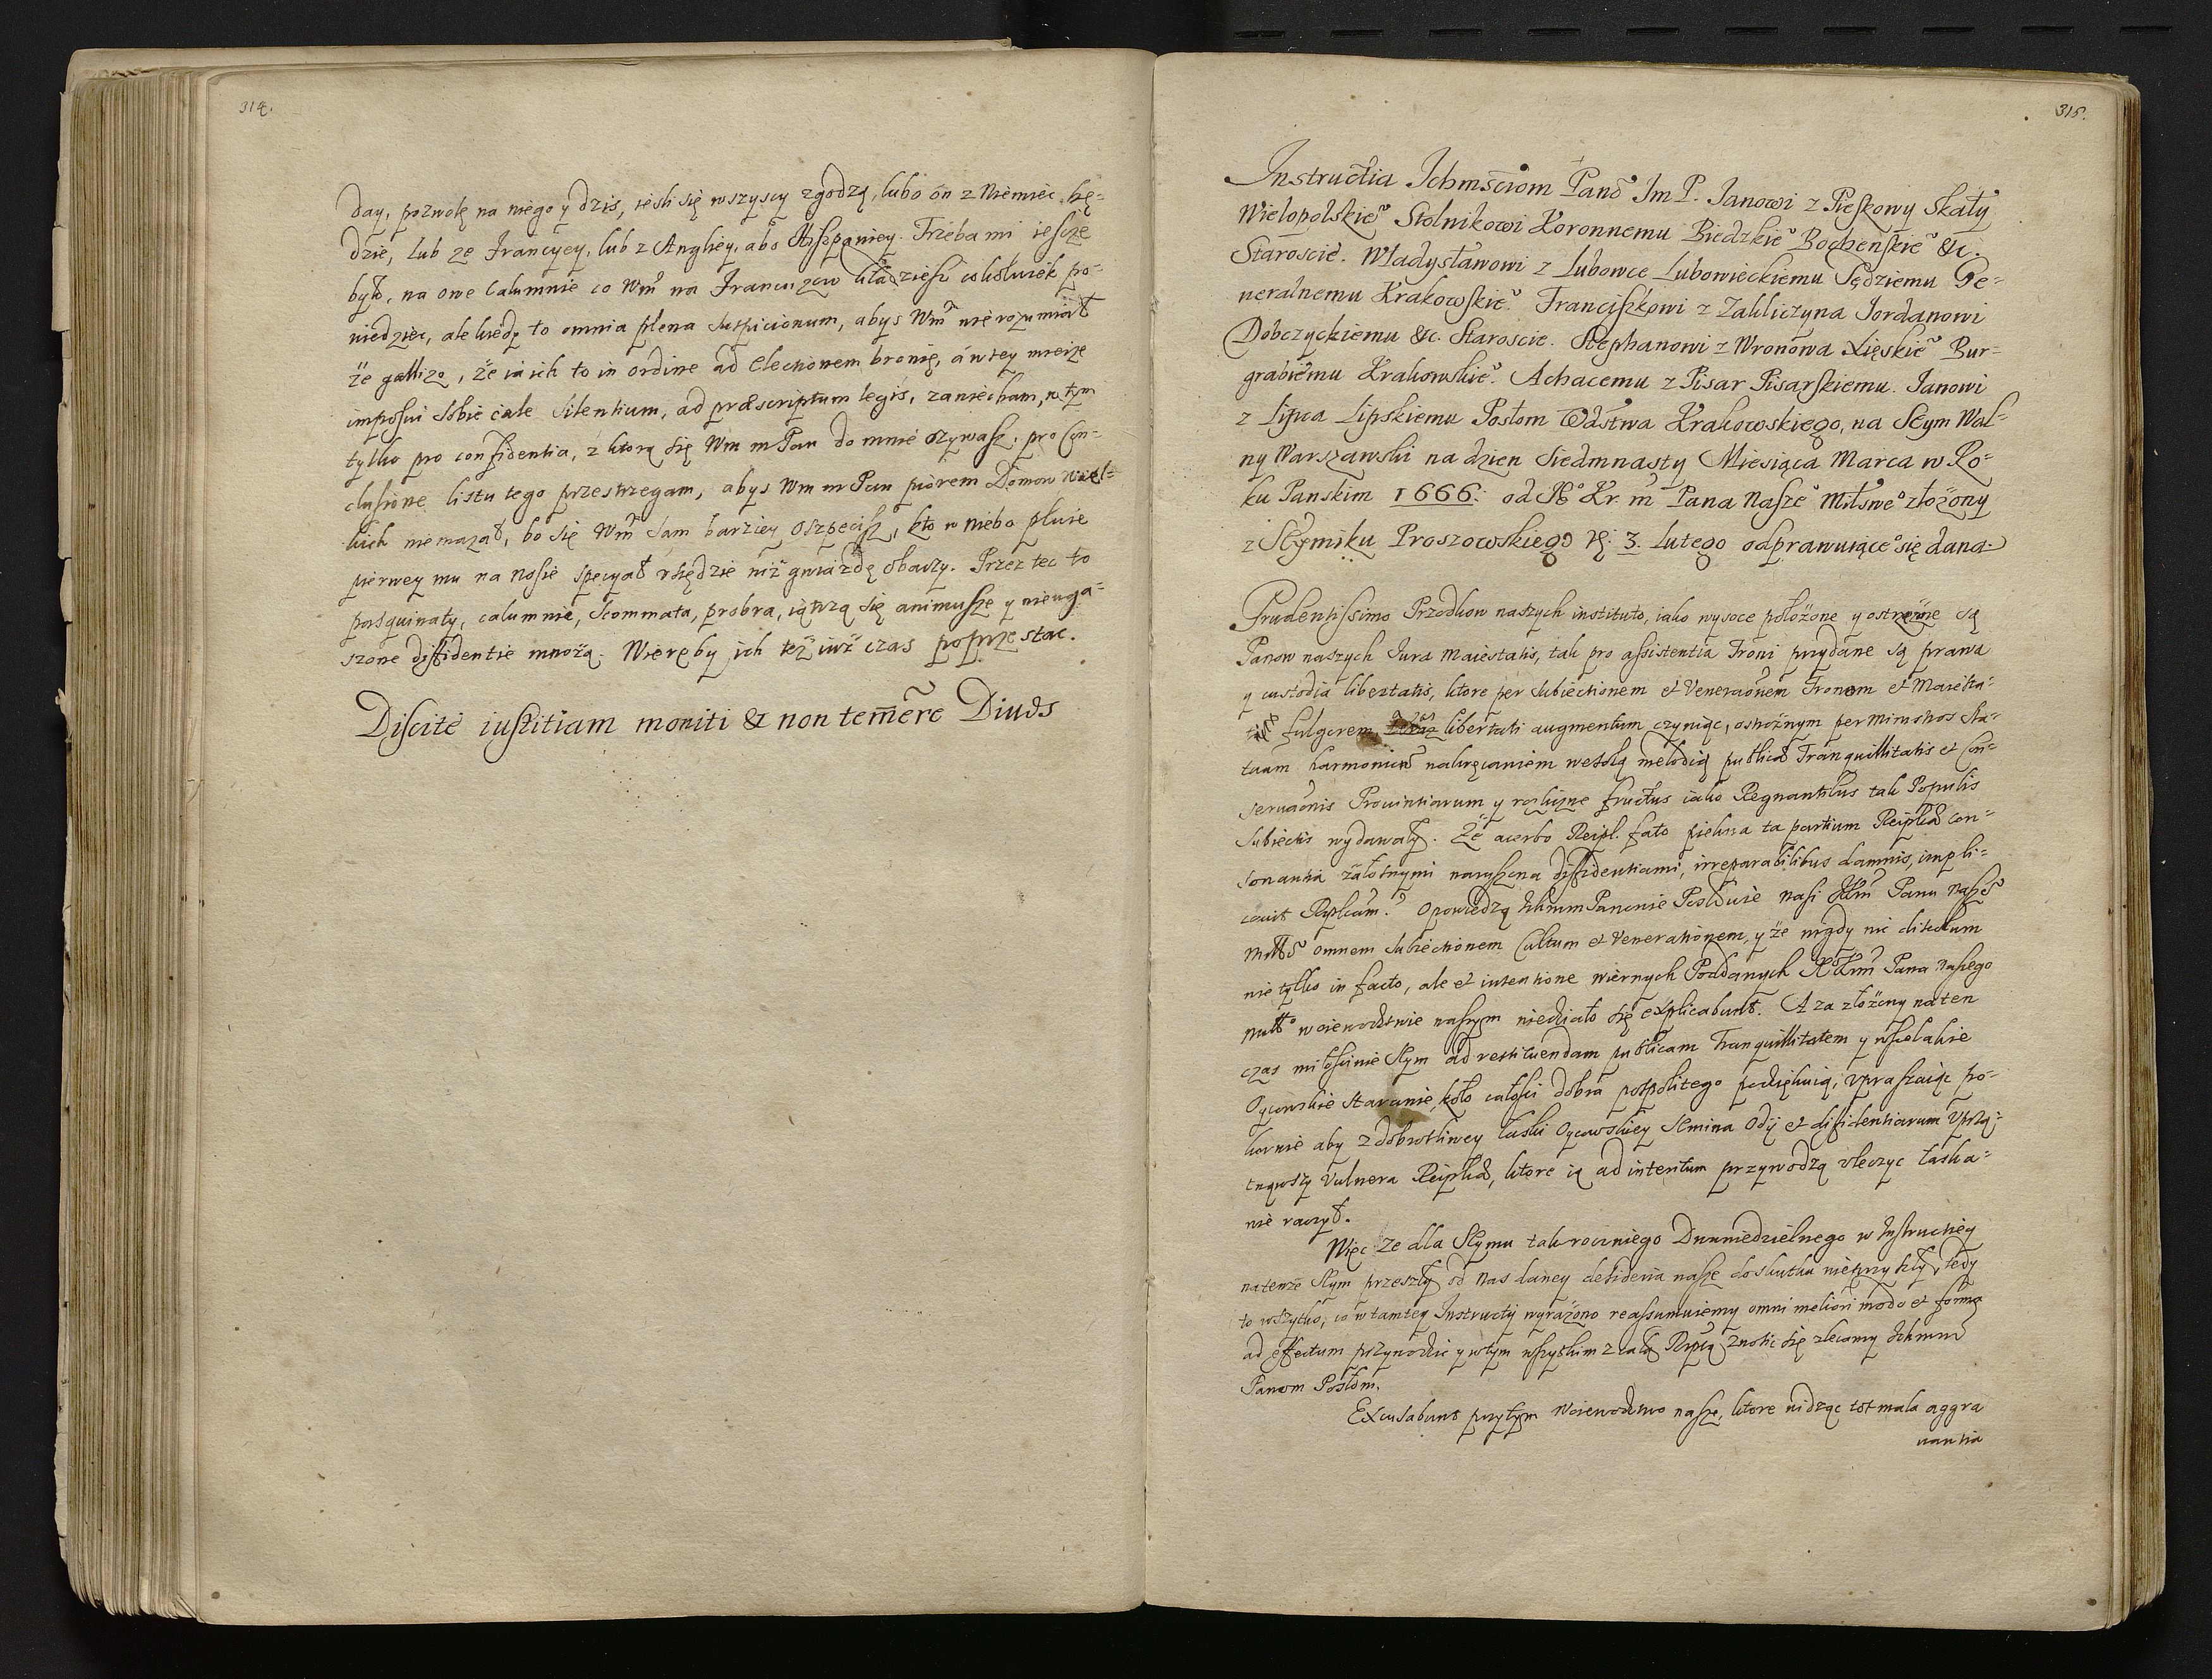 314.
day, pozwolę na niego y dzis, iesli się wszyscy zgodzą, lubo on z Niemiec bę-
dzie, lub ze Francyey, lub z Angliey, abo Hiszpaniey. Trzeba mi iescze
było, na owe Calumnie co Wm̃ na Francuzow kładziesz cokolwiek po-
wiedziec, ale kiedy to omnia plena suspicionum, abys Wm̃ nie rozumiał
że gallizo, że ia ich to in ordine ad Electionem bronię, á w tey mierze
imposui sobie cale silentium, ad præscriptum legis, zaniecham, w tym
tylko pro confidentia, z ktorą się Wm m Pan do mnie ozywasz, pro Con-
clusione listu tego przestrzegam, abys Wm m Pan piorem Domow wiel-
kich niemazał, bo się Wm̃ sam barziey oszpecisz, kto w niebo pluie
pierwey mu na nosie specyał usiędzie niż gwiazdę obaczy. Przez tec to
pasquinaty, calumnie, scommata, probra, iątrzą się animusze y nieuga-
szone diffidentie mnożą. Wieręby ich też iuż czas poprzestac.
Discite iustitiam moniti & non tem̃ere Diuos
315.
Instructia Ichmściom Pano Im P. Ianowi z Pieskowy Skały
Wielopolskie° Stolnikowi Koronnemu Biedzkie° Bochenskie° &c.
Staroscie. Władysławowi z Lubowce Lubowieckiemu Sędziemu Ge-
neralnemu Krakowskie°. Franciszkowi z Zakliczyna Iordanowi
Dobczyckiemu &c. Staroscie. Stephanowi z Wronowa Xięskie° Bur-
grabiemu Krakowskie°. Achacemu z Pisar Pisarskiemu. Ianowi
z Lipca Lipskiemu Posłom Wdstwa Krakowskiego, na Seym Wal-
ny Warszawski na dzien Siedmnasty Miesiąca Marca w Ro-
ku Panskim 1666. od Kr. m Pana Nasze° Miłswe° złożony
z Seymiku Proszowskiego 3. Lutego odprawuiące° się dana.
Prudentissimo Przodkow naszych instituto, iako wysoce położone y ostrożne są
Panow naszych Iura Maiestatis, tak pro assistentia Troni przydane są prawa
y custodia libertatis, ktore per subiectionem et Venerãonem Tronom et Maiesta-
tis fulgorem, libertati augmentum czyniąc, ostrożnym per ministros sta-
tuum harmonico nakręcaniem wesołą melodią publica Tranquillitatis et Con-
seruãonis Prouintiarum y rozliczne fructus iako Regnantibus tak Populis
subiectis wydawały. Że acerbo Reipl. fato piekna ta partium Reiplca con-
sonantia żałosnymi naruszona diffidentiami, irreparabilibus damnis, impli-
cuit Rplicam. Opowiedzą Ichmm Panowie Posłowie nasi Krm Panu Nasze°
Młło omnem subiectionem Cultum et Venerationem, y że nigdy nic
nie tylko in facto, ale et intentione wiernych Poddanych Krm Pana Naszego
młło woiewodztwie naszym niedziało się explicabunt. A za złożony na ten
czas miłosciwie Seym ad restituendam publicam Tranquillitatem y wszelakie
Oycowskie staranie, koło całosci dobra pospolitego podziękuią, vpraszaiąc po-
kornie aby z dobrotliwey łaski Oycowskiey semina Odij et diffidentiarum Vprzą-
tnąwszy Vulnera Reiplca, ktore ią ad interitum przywodzą vleczyc łaska-
wie raczył.
Więc że dla Seymu tak rocznego Dwuniedzielnego w Instructiey
na tenże Seym przeszły od nas daney desideria nasze do skutku nieprzyszły, tedy
to wszytko, co w tamtey Instructij wyrażono reassumuiemy omni meliori modo et forma
ad effectum przywodzic y w tym wszytkim z całą Rptą znosic się zlecamy Ichmm
Panom Posłom.
Excusabunt przytym Woiewodztwo nasze, ktore widząc tot mala aggra
uantia